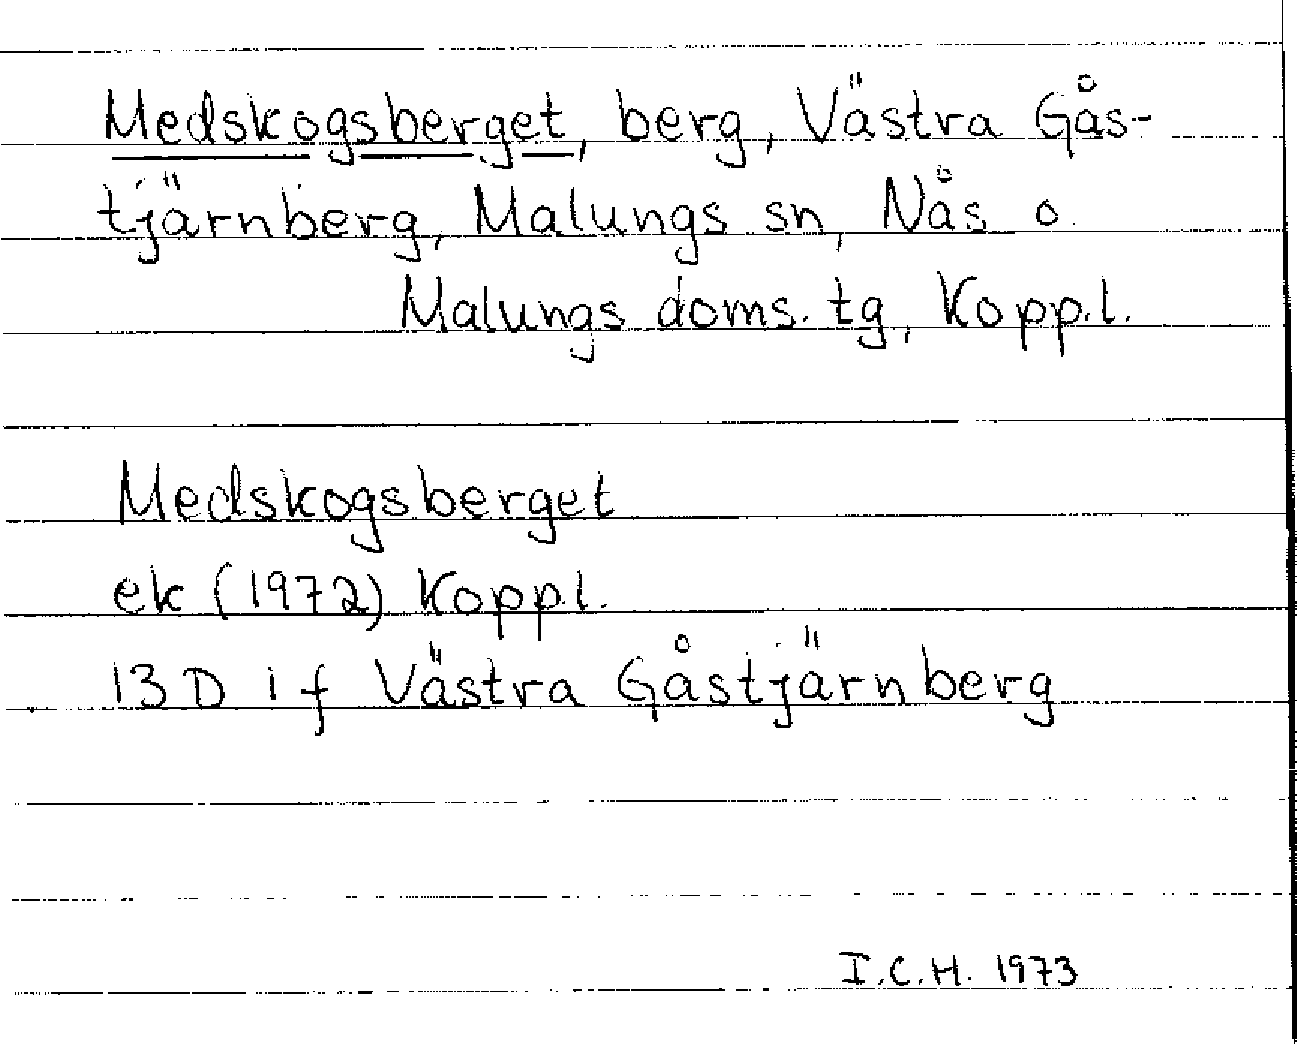 Medskogsberget, berg, Västra Gås-
tjärnberg, Malungs sn, Nås o.
Malungs doms. tg, Kopp.l.
Medskogsberget
ek (1972) Koppl.
13 D i f Västra Gåstjärnberg
I.C.H. 1973